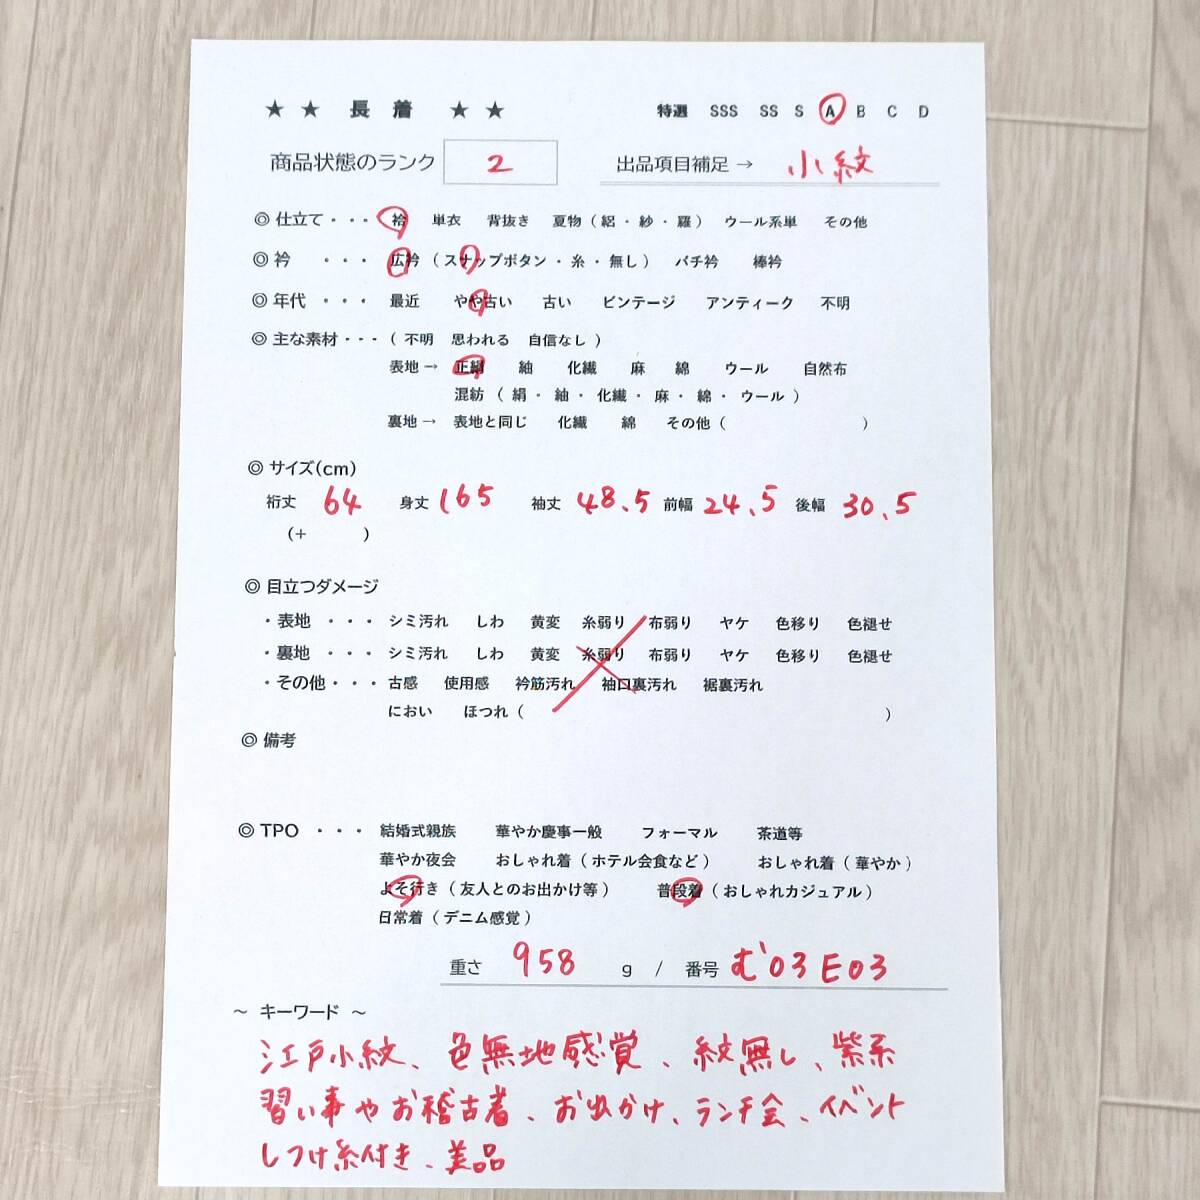 ★ ★ 長 着 ★ ★ 特選 SSS SS S A B C D
商品状態のランク 2 出品項目補足 → 小紋
◎ 仕立て ・・・ 袷 単衣 背抜き 夏物 ( 絽 ・ 紗 ・ 羅 ) ウール系単 その他
◎ 衿 ・・・ 広衿 ( スナップボタン ・ 糸 ・ 無し ) バチ衿 棒衿
◎ 年代 ・・・ 最近 やや古い 古い ビンテージ アンティーク 不明
◎ 主な素材 ・・・ ( 不明 思われる 自信なし )
表地 → 正絹 紬 化繊 麻 綿 ウール 自然布
混紡 ( 絹 ・ 紬 ・ 化繊 ・ 麻 ・ 綿 ・ ウール )
裏地 → 表地と同じ 化繊 綿 その他 ( )
◎ サイズ(cm)
裄丈 64 身丈 165 袖丈 48.5 前幅 24.5 後幅 30.5
(+ )
◎ 目立つダメージ
・ 表地 ・・・ シミ汚れ しわ 黄変 糸弱り 布弱り ヤケ 色移り 色褪せ
・ 裏地 ・・・ シミ汚れ しわ 黄変 糸弱り 布弱り ヤケ 色移り 色褪せ
・ その他 ・・・ 古感 使用感 衿筋汚れ 袖口裏汚れ 裾裏汚れ
におい ほつれ ( )
◎ 備考
◎ TPO ・・・ 結婚式親族 華やか慶事一般 フォーマル 茶道等
華やか夜会 おしゃれ着 ( ホテル会食など ) おしゃれ着 ( 華やか )
よそ行き ( 友人とのお出かけ等 ) 普段着 ( おしゃれカジュアル )
日常着 ( デニム感覚 )
重さ 958 g / 番号 む03E03
～ キーワード ～
江戸小紋、色無地感覚、紋無し、紫系
習い事やお稽古着、お出かけ、ランチ会、イベント
しつけ糸付き、美品